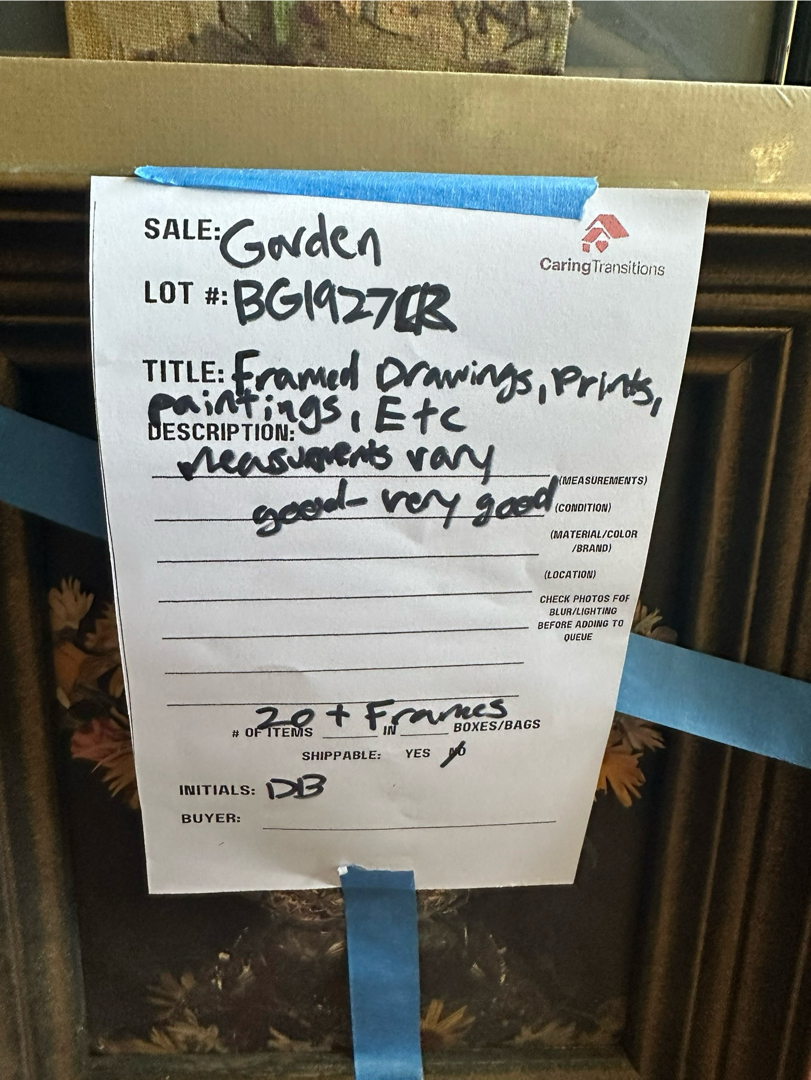 SALE: Garden
CaringTransitions
LOT #: BG1927CR
TITLE: Framed Drawings, Prints,
paintings, Etc
DESCRIPTION:
Measurments vary
(MEASUREMENTS)
good - very good
(CONDITION)
(MATERIAL/COLOR
/BRAND)
(LOCATION)
CHECK PHOTOS FOR
BLUR/LIGHTING
BEFORE ADDING TO
QUEUE
20 + Frames
# OF ITEMS ____ IN ____ BOXES/BAGS
SHIPPABLE: YES NO
INITIALS: DB
BUYER: